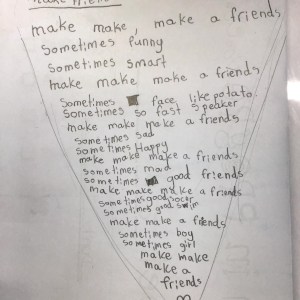 make make, make a friends
sometimes funny
sometimes smart
make make make a friends
Sometimes face like potato
sometimes so fast speaker
make make make a friends
sometimes sad
sometimes Happy
make make make a friends
sometimes mad
sometimes good friends
make make make a friends
sometimes good socar
sometimes good swim
make make a friends
sometimes boy
sometimes girl
make make
make a
friends